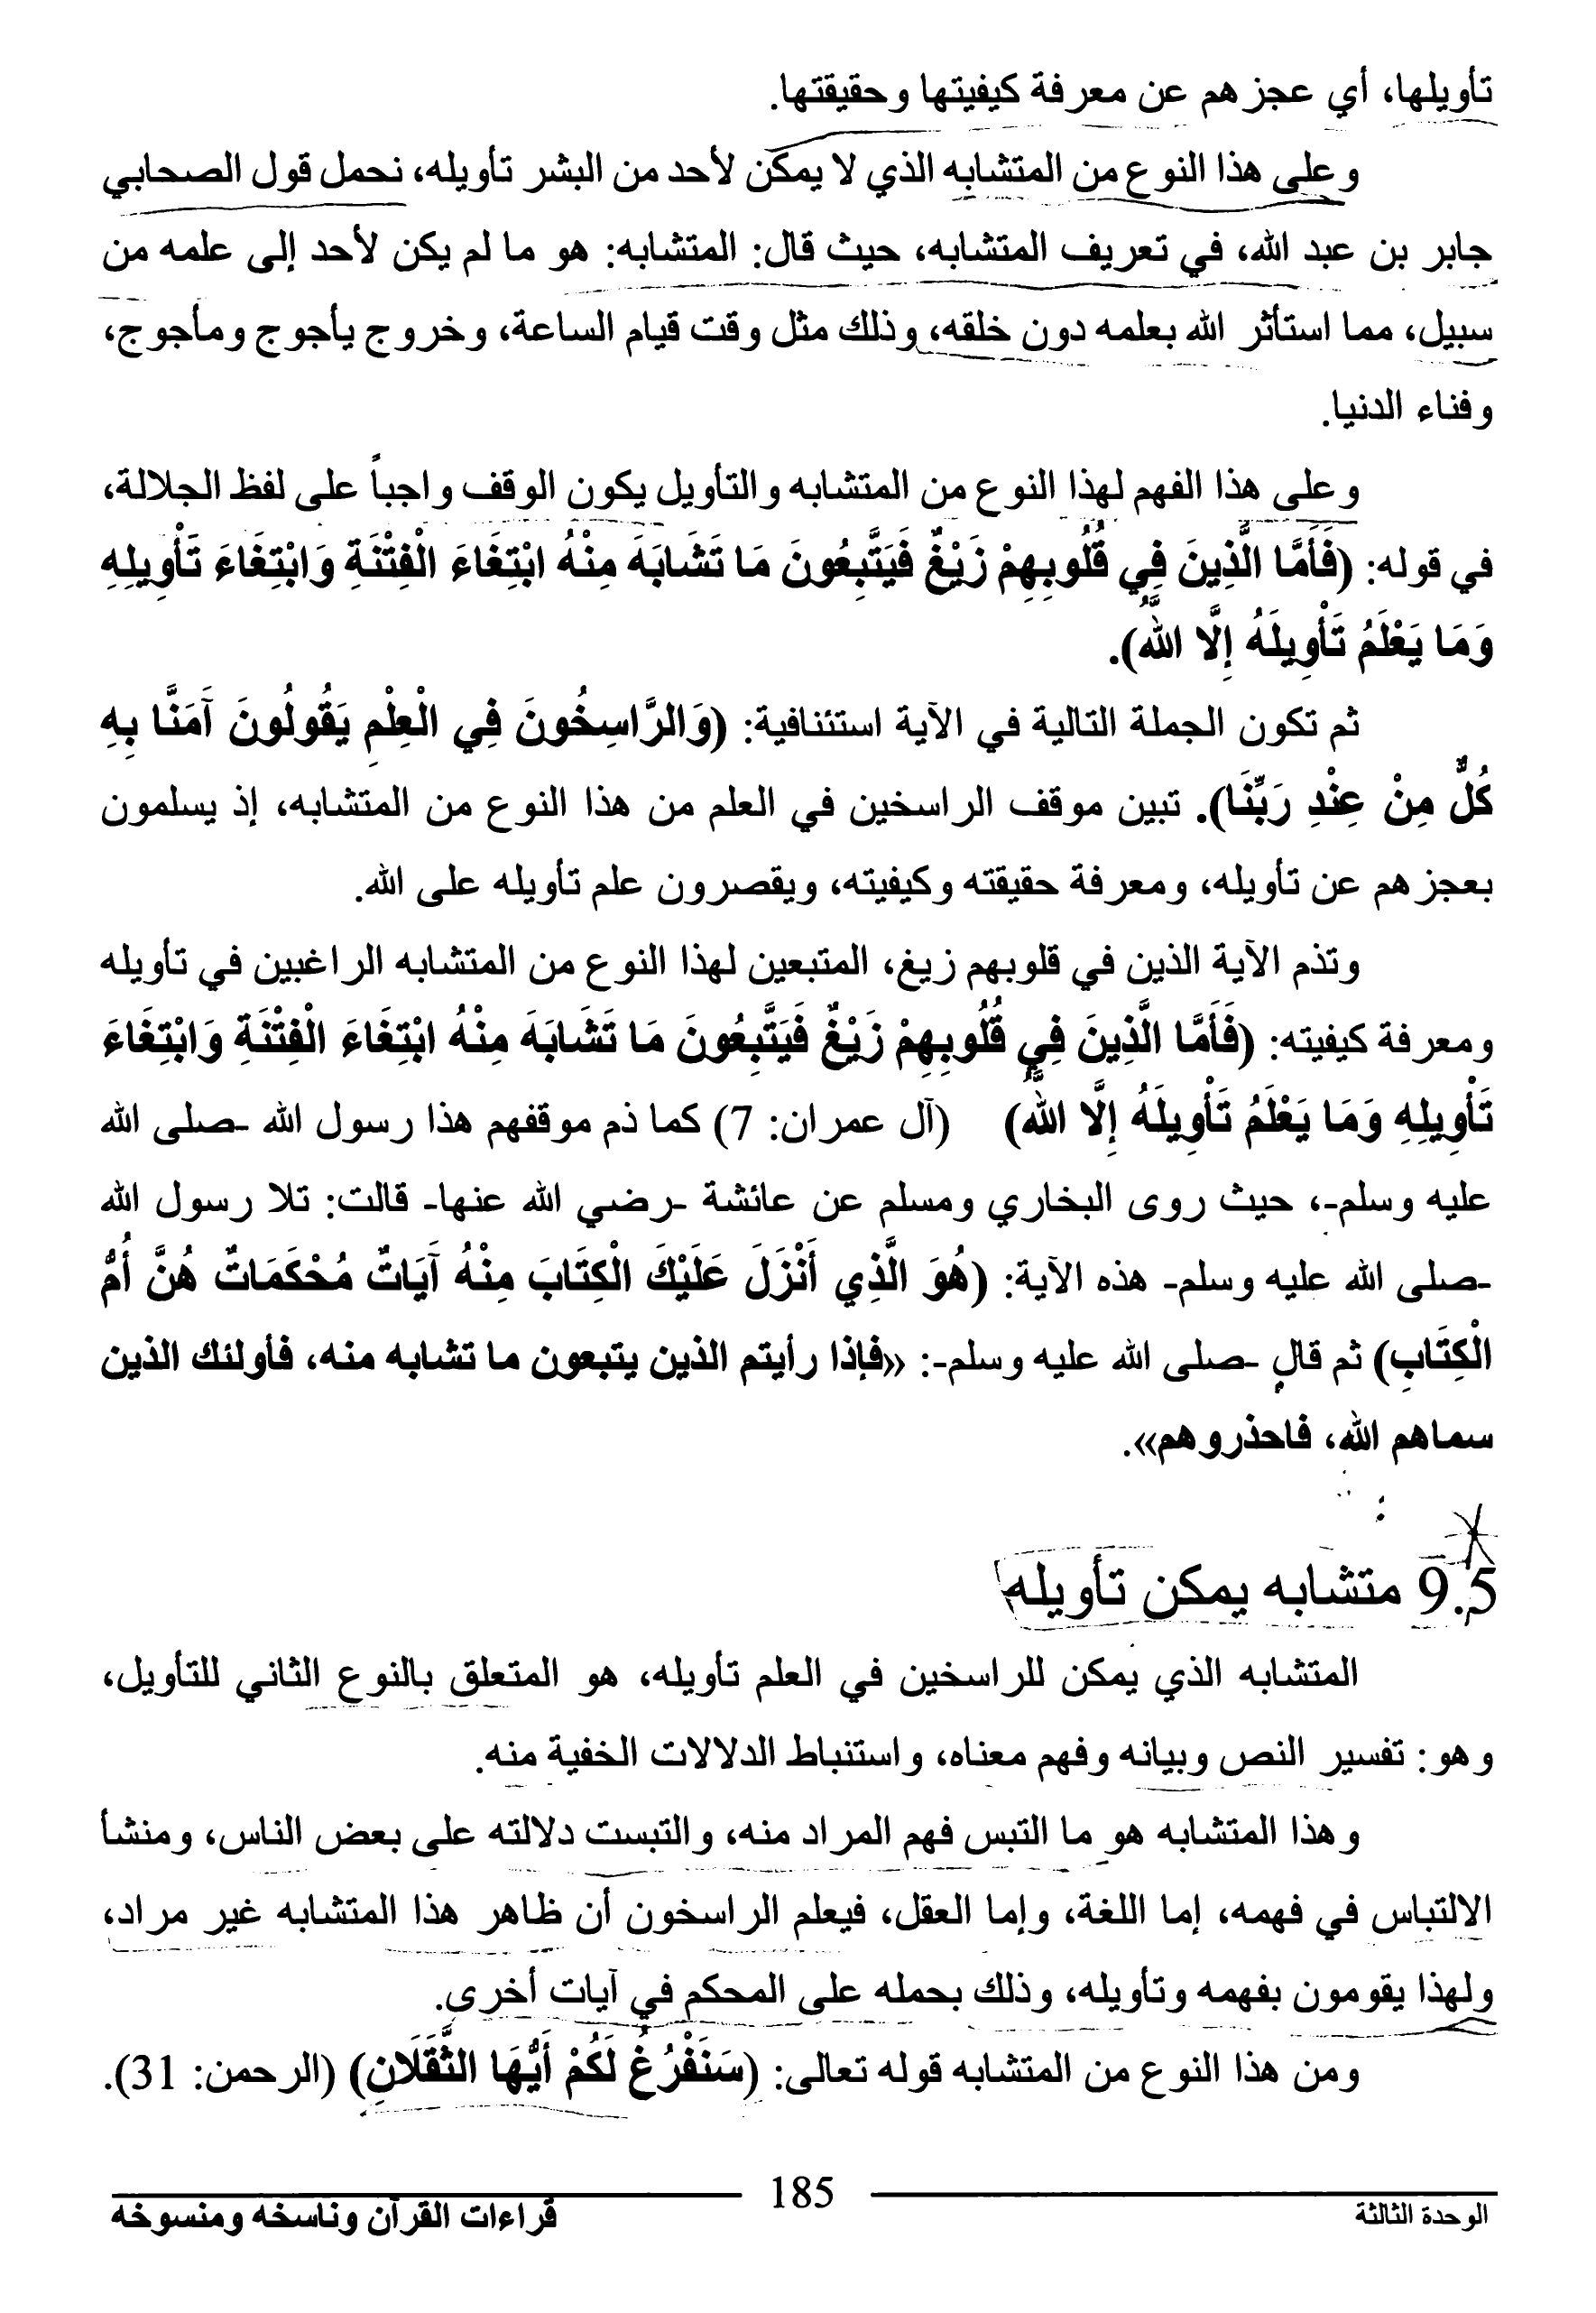 تأويلها، أي عجزهم عن معرفة كيفيتها وحقيقتها.
وعلى هذا النوع من المتشابه الذي لا يمكن لأحد من البشر تأويله، نحمل قول الصحابي
جابر بن عبد الله، في تعريف المتشابه، حيث قال: المتشابه: هو ما لم يكن لأحد إلى علمه من
سبيل، مما استأثر الله بعلمه دون خلقه، وذلك مثل وقت قيام الساعة، وخروج يأجوج ومأجوج،
وفناء الدنيا.
وعلى هذا الفهم لهذا النوع من المتشابه والتأويل يكون الوقف واجباً على لفظ الجلالة،
في قوله: (فَأَمَّا الَّذِينَ فِي قُلُوبِهِمْ زَيْغٌ فَيَتَّبِعُونَ مَا تَشَابَهَ مِنْهُ ابْتِغَاءَ الْفِتْنَةِ وَابْتِغَاءَ تَأْوِيلِهِ
وَمَا يَعْلَمُ تَأْوِيلَهُ إِلَّا اللَّهُ).
ثم تكون الجملة التالية في الآية استئنافية: (وَالرَّاسِخُونَ فِي الْعِلْمِ يَقُولُونَ آَمَنَّا بِهِ
كُلٌّ مِنْ عِنْدِ رَبِّنَا). تبين موقف الراسخين في العلم من هذا النوع من المتشابه، إذ يسلمون
بعجزهم عن تأويله، ومعرفة حقيقته وكيفيته، ويقصرون علم تأويله على الله.
وتذم الآية الذين في قلوبهم زيغ، المتبعين لهذا النوع من المتشابه الراغبين في تأويله
ومعرفة كيفيته: (فَأَمَّا الَّذِينَ فِي قُلُوبِهِمْ زَيْغٌ فَيَتَّبِعُونَ مَا تَشَابَهَ مِنْهُ ابْتِغَاءَ الْفِتْنَةِ وَابْتِغَاءَ
تَأْوِيلِهِ وَمَا يَعْلَمُ تَأْوِيلَهُ إِلَّا اللَّهُ) (آل عمران: 7) كما ذم موقفهم هذا رسول الله -صلى الله
عليه وسلم-، حيث روى البخاري ومسلم عن عائشة -رضي الله عنها- قالت: تلا رسول الله
-صلى الله عليه وسلم- هذه الآية: (هُوَ الَّذِي أَنْزَلَ عَلَيْكَ الْكِتَابَ مِنْهُ آَيَاتٌ مُحْكَمَاتٌ هُنَّ أُمُّ
الْكِتَابِ) ثم قال -صلى الله عليه وسلم-: «فإذا رأيتم الذين يتبعون ما تشابه منه، فأولئك الذين
سماهم الله، فاحذروهم».
9.5 متشابه يمكن تأويله
المتشابه الذي يمكن للراسخين في العلم تأويله، هو المتعلق بالنوع الثاني للتأويل،
وهو: تفسير النص وبيانه وفهم معناه، واستنباط الدلالات الخفية منه.
وهذا المتشابه هو ما التبس فهم المراد منه، والتبست دلالته على بعض الناس، ومنشأ
الالتباس في فهمه، إما اللغة، وإما العقل، فيعلم الراسخون أن ظاهر هذا المتشابه غير مراد،
ولهذا يقومون بفهمه وتأويله، وذلك بحمله على المحكم في آيات أخرى.
ومن هذا النوع من المتشابه قوله تعالى: (سَنَفْرُغُ لَكُمْ أَيُّهَا الثَّقَلَانِ) (الرحمن: 31).
185
الوحدة الثالثة
قراءات القرآن وناسخه ومنسوخه